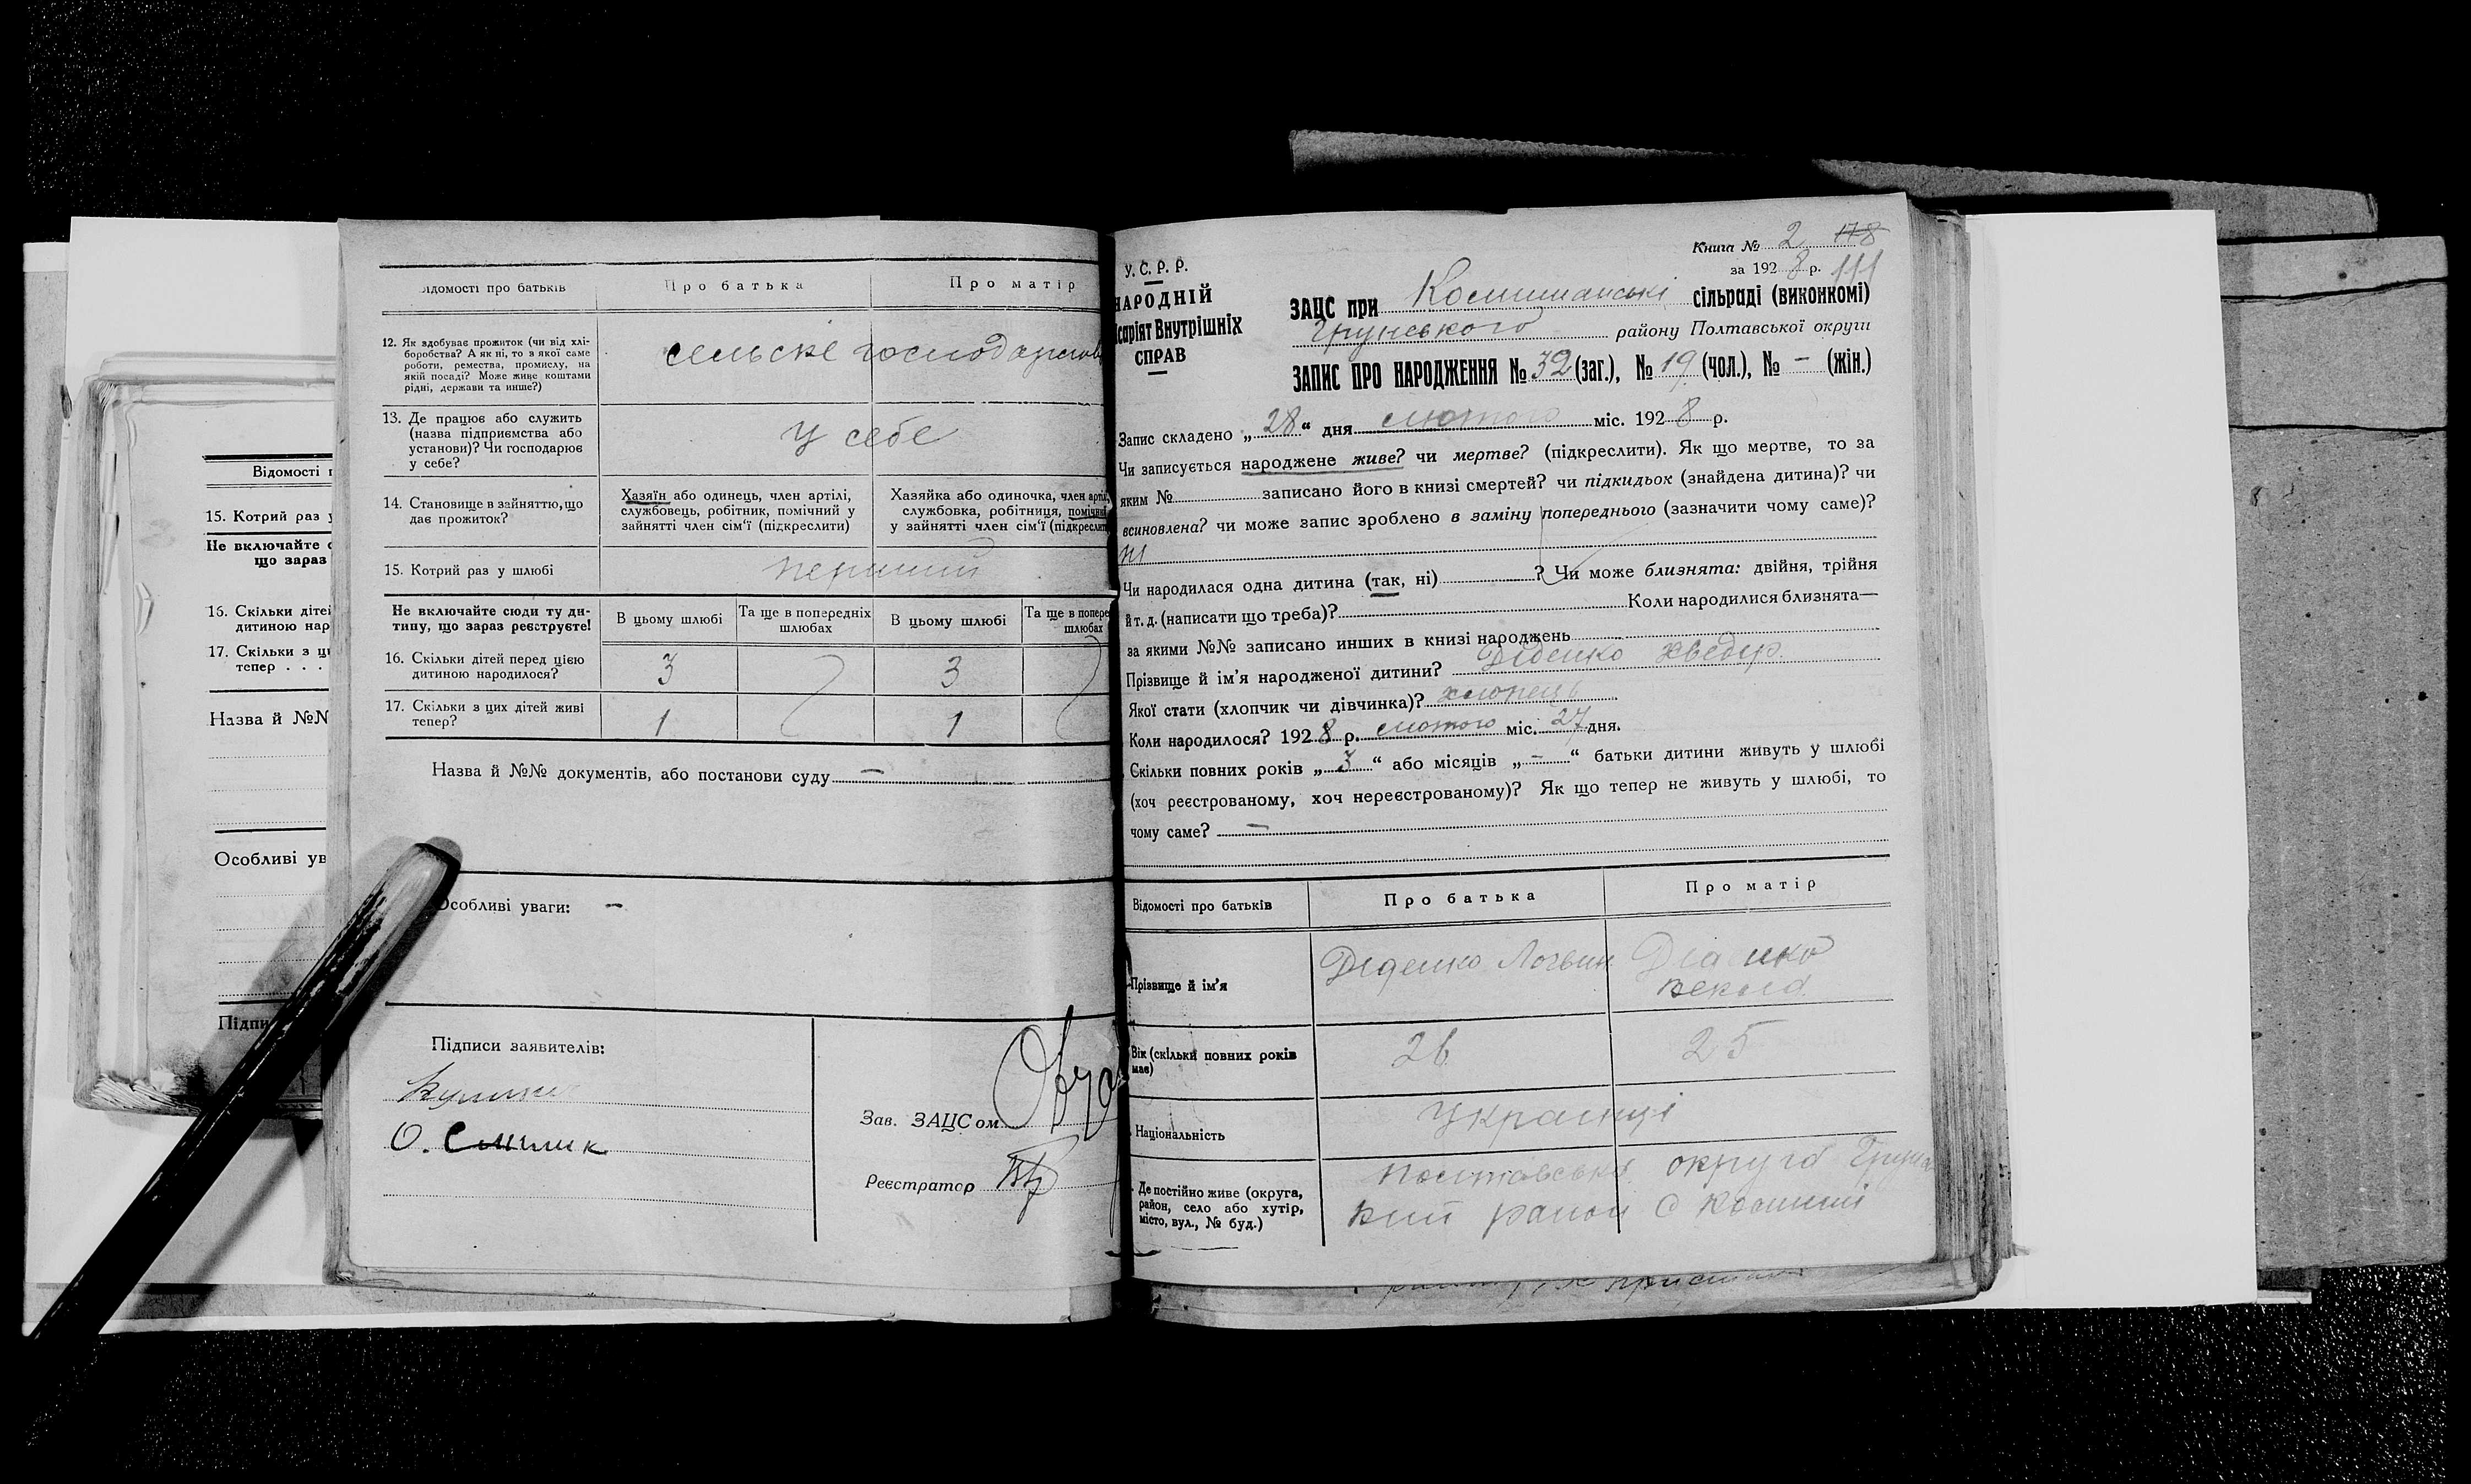 Відомості п
15. Котрий раз у
Не включайте с
що зараз
16. Скільки дітей
дитиною нар
17. Скільки з ци
тепер . . .
Назва й №№
Особливі ув
Підпи
ідомості про батьків Про батька Про матір
12. Як здобуває прожиток (чи від хлі-
боробства? А як ні, то з якої саме
роботи, ремества, промислу, на
якій посаді? Може живе коштами
рідні, держави та инше?)
сельске господарство
13. Де працює або служить
(назва підприємства або
установи)? Чи господарює
у себе?
у себе
14. Становище в зайняттю, що
дає прожиток?
Хазяїн або одинець, член артілі,
службовець, робітник, помічний у
зайнятті член сім'ї (підкреслити)
Хазяйка або одиночка, член артіл
службовка, робітниця, помічний
у зайнятті член сім'ї (підкреслит
15. Котрий раз у шлюбі перший
Не включайте сюди ту ди-
тину, що зараз реєструєте!
В цьому шлюбі Та ще в попередніх
шлюбах
В цьому шлюбі Та ще в попере
шлюбах
16. Скільки дітей перед цією
дитиною народилося?
3 3
17. Скільки з цих дітей живі
тепер?
1 1
Назва й №№ документів, або постанови суду —
Особливі уваги: —
Підписи заявителів:
О. Смилик
Зав. ЗАЦСом
Реєстратор
Книга № 2 178
за 1928 р. 111
У.С.Р.Р.
НАРОДНІЙ
ісаріят Внутрішніх
СПРАВ
ЗАЦС при сільраді (виконкомі)
Грунського району Полтавської округи
ЗАПИС ПРО НАРОДЖЕННЯ № 32 (заг.), № 19 (чол.), № – (жін.)
Запис складено „28“ дня лютого міс. 1928 р.
Чи записується народжене живе? чи мертве? (підкреслити). Як що мертве, то за
яким № записано його в книзі смертей? чи підкидьок (знайдена дитина)? чи
всиновлена? чи може запис зроблено в заміну попереднього (зазначити чому саме)?
ні
Чи народилася одна дитина (так, ні) ? Чи може близнята: двійня, трійня
й т. д. (написати що треба)? Коли народилися близнята—
за якими №№ записано инших в книзі народжень
Прізвище й ім'я народженої дитини? Діденко Хведір
Якої стати (хлопчик чи дівчинка)? хлопець
Коли народилося? 1928 р. лютого міс. 27 дня.
Скільки повних років „3“ або місяців „–“ батьки дитини живуть у шлюбі
(хоч реєстрованому, хоч нереєстрованому)? Як що тепер не живуть у шлюбі, то
чому саме? —
Відомості про батьків Про батька Про матір
Прізвище й ім'я
Діденко Логвин
Вік (скільки повних років
має)
26 25
Національність
Українці
Де постійно живе (округа,
район, село або хутір,
місто, вул., № буд.)
Полтавська округа Грунс
кий район с